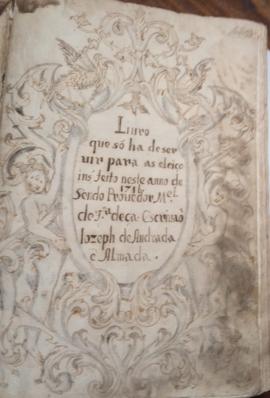 Livro
que só ha de ser
vir para as eleico
ins feito neste anno de
1716
Sendo Provedor M.el
de F.ca Escrivão
Iozeph de Andrada
e Almada.